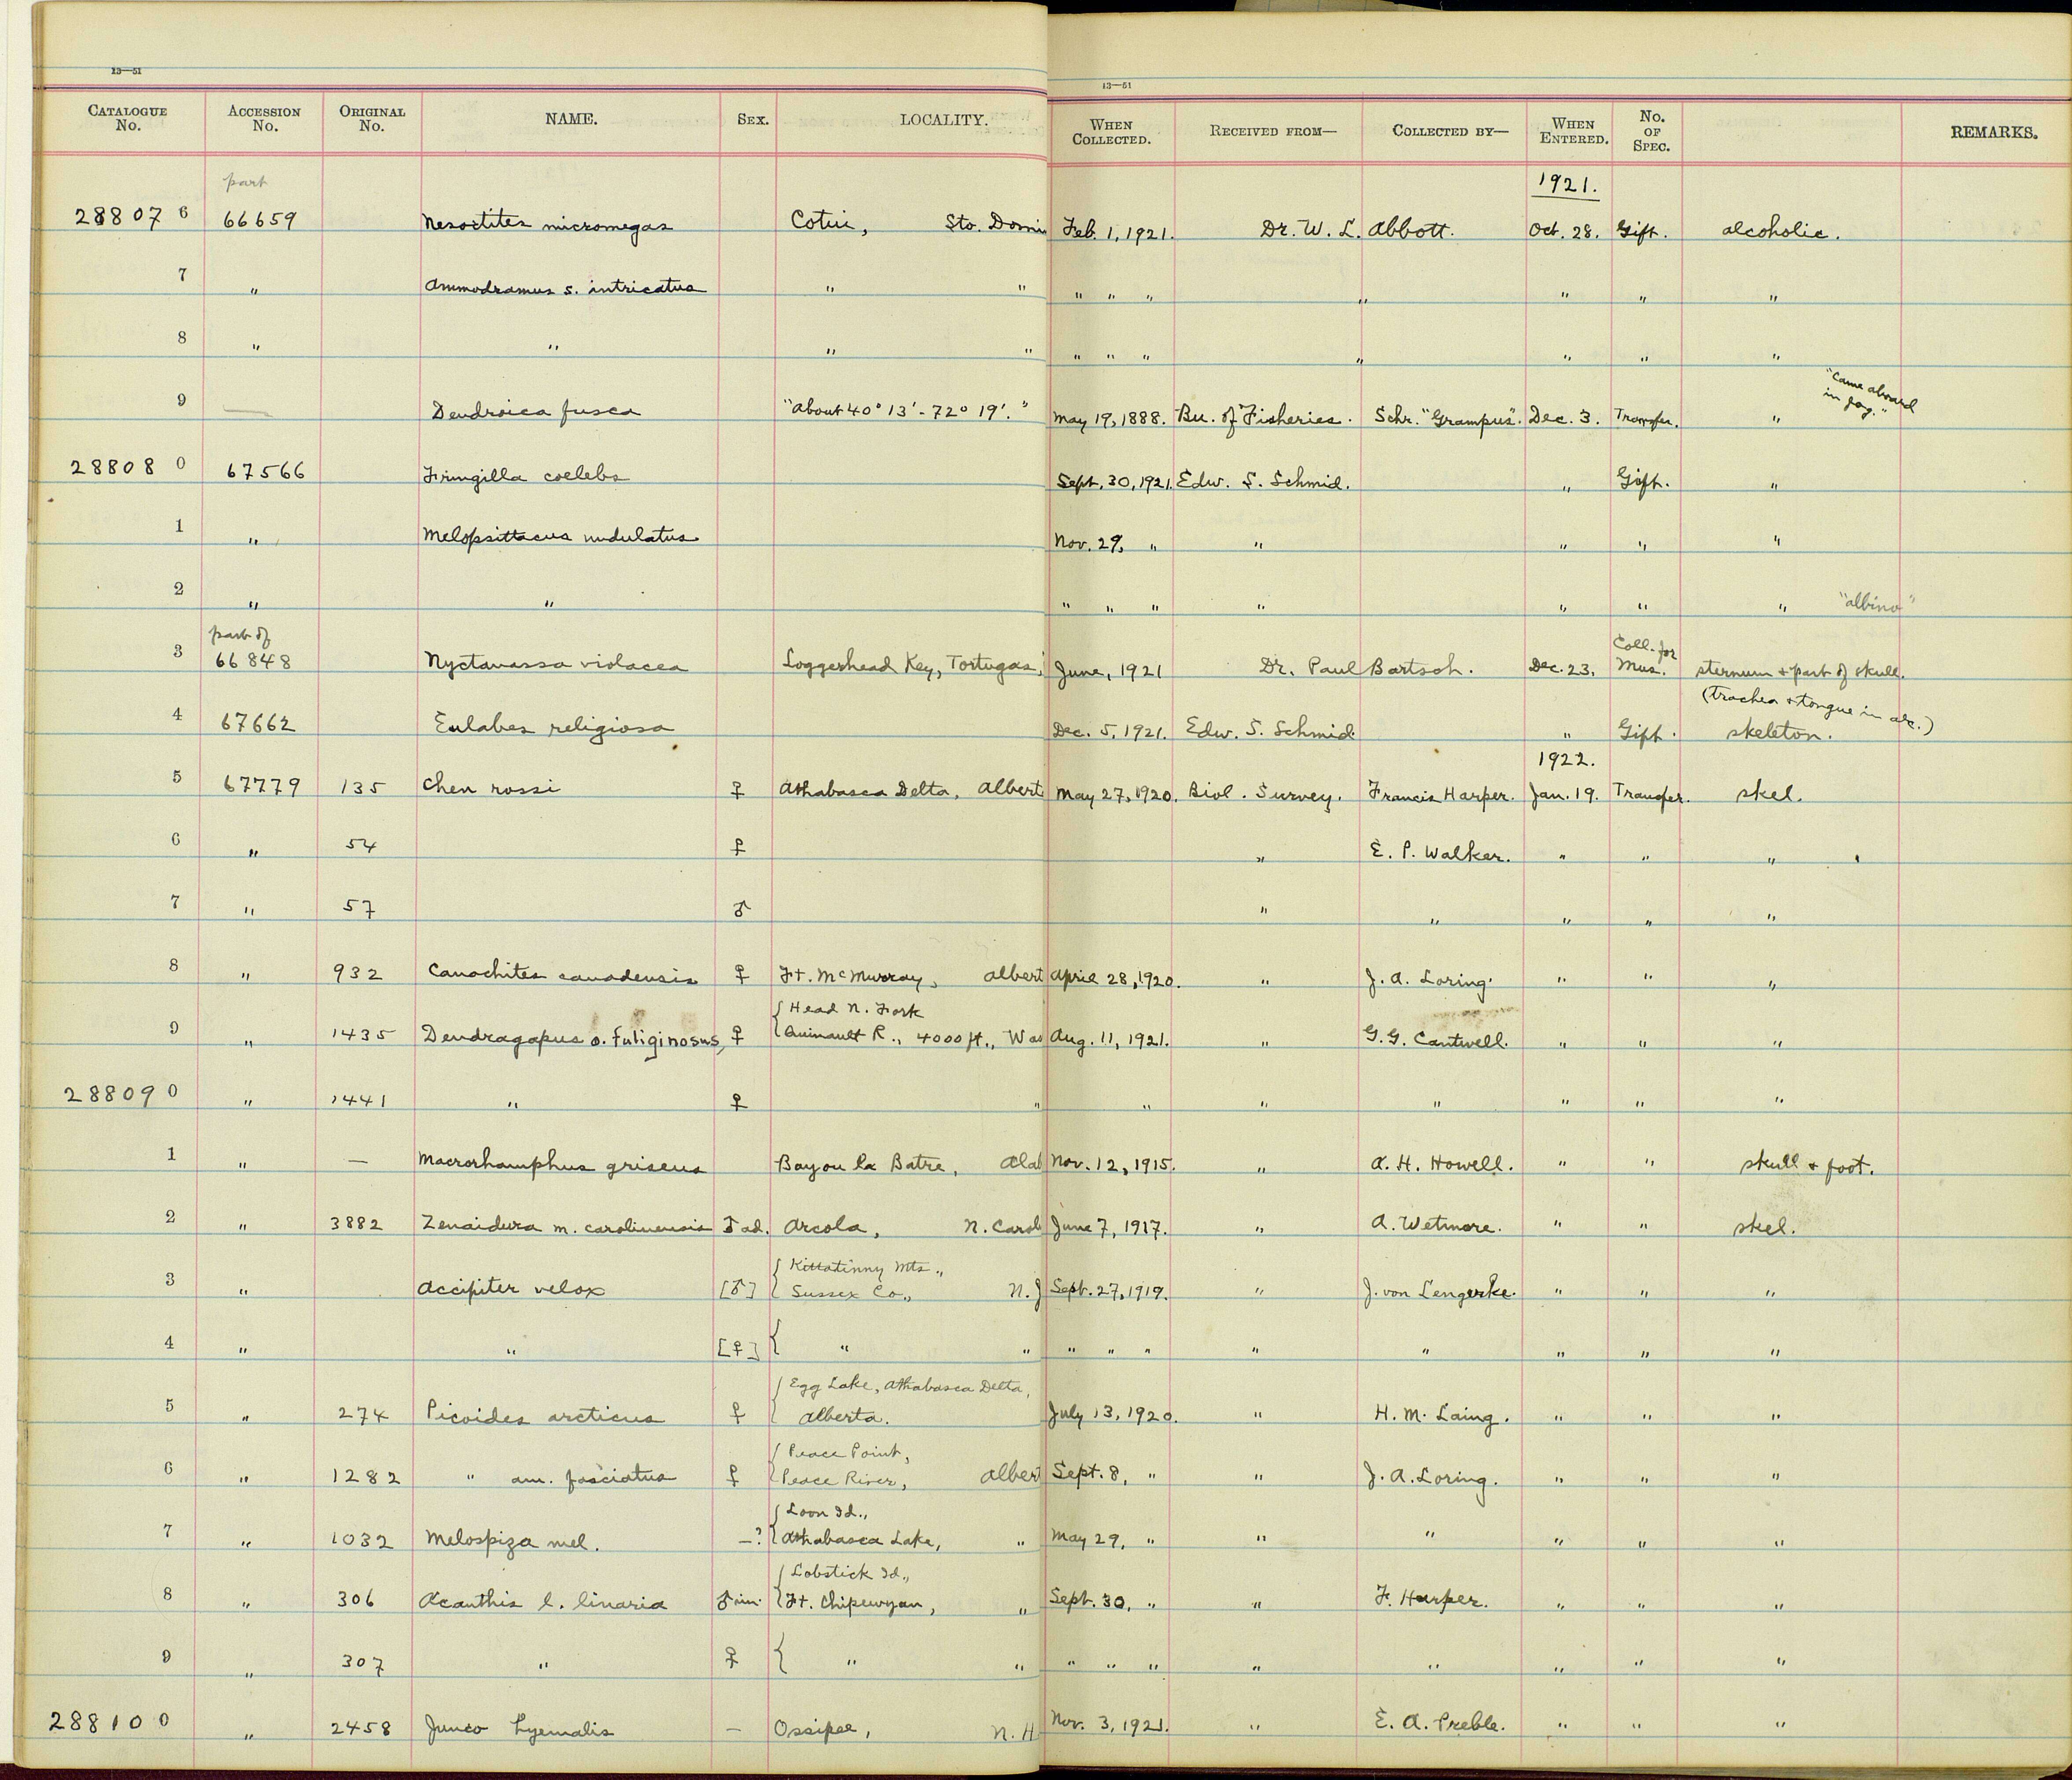 13—51
13—51
CATALOGUE No. ACCESSION No. ORIGINAL No. NAME. SEX. LOCALITY. WHEN COLLECTED. RECEIVED FROM— COLLECTED BY— WHEN ENTERED. No. OF SPEC. REMARKS.
part 1921.
28807 6 66659 Nesoctites micromegas Cotui, Sto. Domin Feb. 1, 1921. Dr. W. L. Abbott. Oct. 28. Gift. alcoholic.
7 " Ammodramus s. intricatus " " " " " " " " "
8 " " " " " " " " " " "
"Came aboard
in fog."
9 — Dendroica fusca "About 40° 13' - 72° 19'." May 19, 1888. Bu. of Fisheries. Schr. "Grampus". Dec. 3. Transfer. "
28808 0 67566 Fringilla coelebs Sept. 30, 1921. Edw. S. Schmid. " Gift. "
1 " Melopsittacus undulatus Nov. 29, " " " " "
2 " " " " " " " " " "albino"
part of Coll. for
3 66848 Nyctanassa violacea Loggerhead Key, Tortugas, June, 1921 Dr. Paul Bartsch. Dec. 23. Mus. sternum + part of skull.
(trachea + tongue in alc.)
4 67662 Eulabes religiosa Dec. 5, 1921. Edw. S. Schmid " Gift. skeleton.
1922.
5 67779 135 Chen rossi ♀ Athabasca Delta, Albert May 27, 1920. Biol. Survey. Francis Harper. Jan. 19. Transfer. skel.
6 " 54 ♀ " E. P. Walker. " " "
7 " 57 ♂ " " " " "
8 " 932 Canachites canadensis ♀ Ft. McMurray, Albert April 28, 1920. " J. A. Loring. " " "
{ Head N. Fork
9 " 1435 Dendragapus o. fuliginosus, ♀ Quinault R., 4000 ft., Was Aug. 11, 1921. " G. G. Cantwell. " " "
28809 0 " 1441 " ♀ " " " " " " "
1 " — Macrorhamphus griseus Bayou la Batre, Alab Nov. 12, 1915. " A. H. Howell. " " skull + foot.
2 " 3882 Zenaidura m. carolinensis ♂ ad. Arcola, N. Carol June 7, 1917. " A. Wetmore. " " skel.
{ Kittatinny Mts.,
3 " Accipiter velox [♂] Sussex Co., N. J Sept. 27, 1919. " J. von Lengerke. " " "
4 " " [♀] { " " " " " " " " " "
{ Egg Lake, Athabasca Delta,
5 " 274 Picoides arcticus ♀ Alberta. July 13, 1920. " H. M. Laing. " " "
{ Peace Point,
6 " 1282 " am. fasciatus ♀ Peace River, Albert Sept. 8, " " J. A. Loring. " " "
{ Loon Id.,
7 " 1032 Melospiza mel. —? Athabasca Lake, " May 29, " " " " " "
{ Lobstick Id.,
8 " 306 Acanthis l. linaria ♂ im. Ft. Chipewyan, " Sept. 30, " " F. Harper. " " "
9 " 307 " ♀ { " " " " " " " " " "
28810 0 " 2458 Junco hyemalis — Ossipee, N. H Nov. 3, 1921. " E. A. Preble. " " "